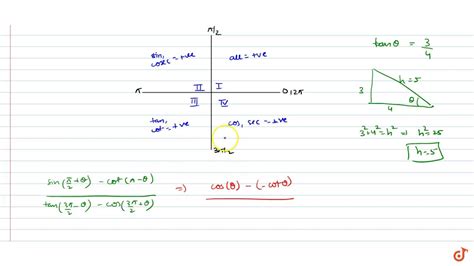 π/2
sin, cosec = +ve
all = +ve
II I
π 0, 2π
III IV
tan, cot = +ve
cos, sec = +ve
3π/2
tanθ = 3/4
3
h=5
θ
4
3²+4² = h² ⇒ h² = 25
h=5
sin(π/2 + θ) - cot(π-θ)
tan(3π/2 - θ) - cos(3π/2 + θ)
⇒ cos(θ) - (-cotθ)